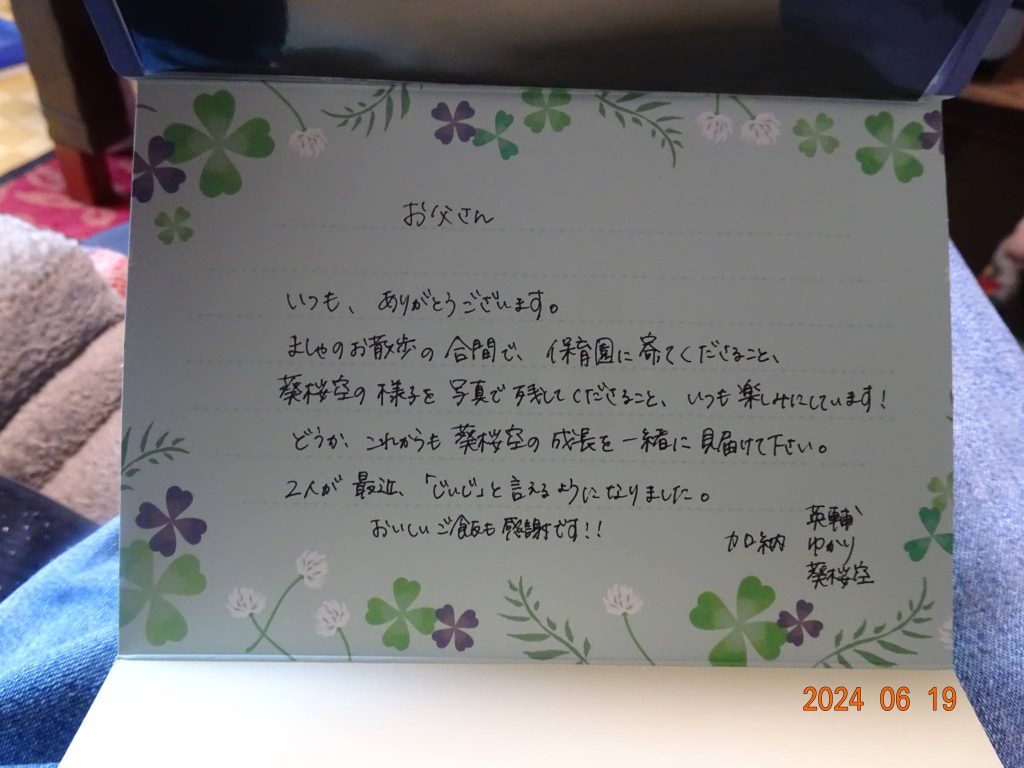 お父さん
いつも、ありがとうございます。
ましゃのお散歩の合間で、保育園に寄てくださること、
葵桜空の様子を写真で残してくださること、いつも楽しみにしています!
どうか、これからも葵桜空の成長を一緒に見届けて下さい。
2人が最近、「じぃじ」と言えるようになりました。
おいしいご飯も感謝です!!
英輔
加納 ゆかり
葵桜空
2024 06 19